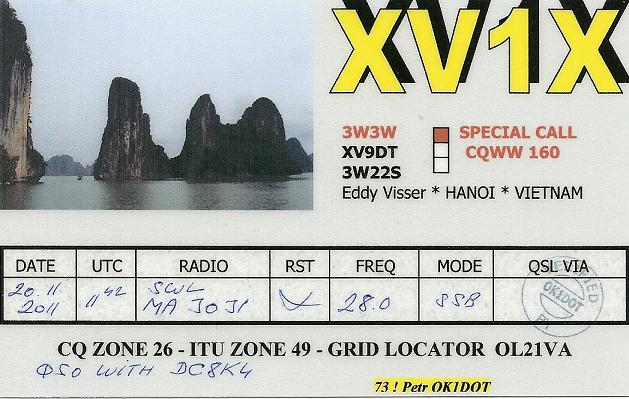 XV1X
3W3W SPECIAL CALL
XV9DT CQWW 160
3W22S
Eddy Visser * HANOI * VIETNAM
DATE UTC RADIO RST FREQ MODE QSL VIA
20.11. 2011 11 42 SWL MA JOJI 28.0 SSB
OK1DOT
CQ ZONE 26 - ITU ZONE 49 - GRID LOCATOR OL21VA
QSO WITH DC8K4
73 ! Petr OK1DOT